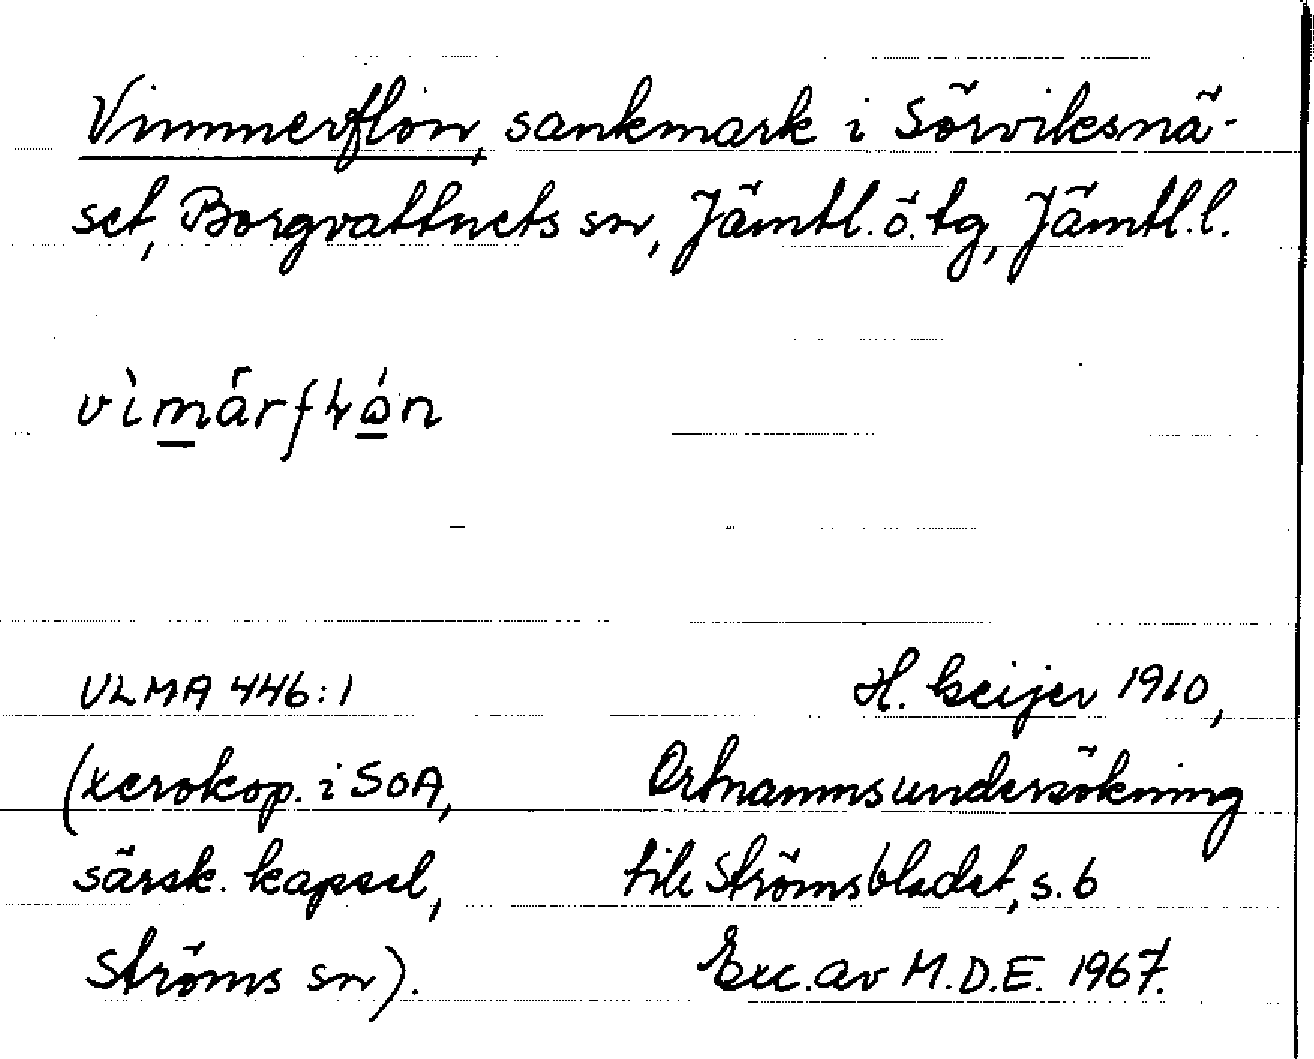 Vimmerflon, sankmark i Sörviksnä-
set, Borgvattnets sn, Jämtl. ö. tg, Jämtl. l.
ULMA 446:1 H. Geijer 1910,
(xerokop. i SOA, Ortnamnsundersökning
särsk. kapsel, till Strömsbladet, s. 6
Ströms sn). Exc. av M.D.E. 1967.